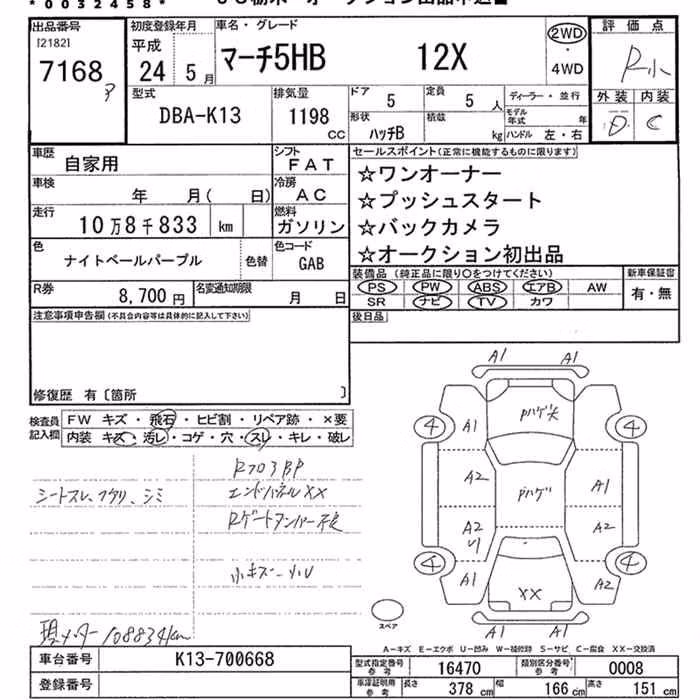 *0032458*
出品番号
[2182]
7168
初度登録年月
平成
24 5月
車名・グレード
マーチ5HB 12X
2WD
・
4WD
評価点
R小
外装 内装
D C
型式
DBA-K13
排気量
1198
CC
ドア 5
定員 5 人
形状 ハッチB
積載 kg
ディーラー・並行
モデル年式 年
ハンドル 左・右
車歴 自家用
シフト
FAT
車検 年 月( 日)
冷房
AC
走行
10万8千833 km
燃料
ガソリン
色
ナイトベールパープル
色替
色コード
GAB
R券
8,700円
名変通知期限
月 日
セールスポイント(正常に機能するものに限ります)
☆ワンオーナー
☆プッシュスタート
☆バックカメラ
☆オークション初出品
装備品 (純正品に限り○をつけてください)
PS PW ABS エアB AW
SR ナビ TV カワ
新車保証書
有・無
後日品
注意事項申告欄(不具合内容等は具体的に記入して下さい)
修復歴 有〔箇所 〕
検査員記入欄
FW キズ・飛石・ヒビ割・リペア跡・×要
内装 キズ・汚レ・コゲ・穴・スレ・キレ・破レ
R703BP
シートスレ、フケリ、シミ
エンドパネルXX
小キズ-小U
現メーター108834km
A1 A1
4 A1 Pハゲ大 4
A2 Pハゲ A1
A2
U1
A2
4 A1 XX A2 4
A1 A1
スペア
A-キズ E-エクボ U-凹み W-補修跡 S-サビ C-腐食 XX-交換済
車台番号 K13-700668
登録番号
型式指定番号 参考 16470
類別区分番号 参考 0008
車庫証明用 参考
長さ 378 cm
幅 166 cm
高さ 151 cm